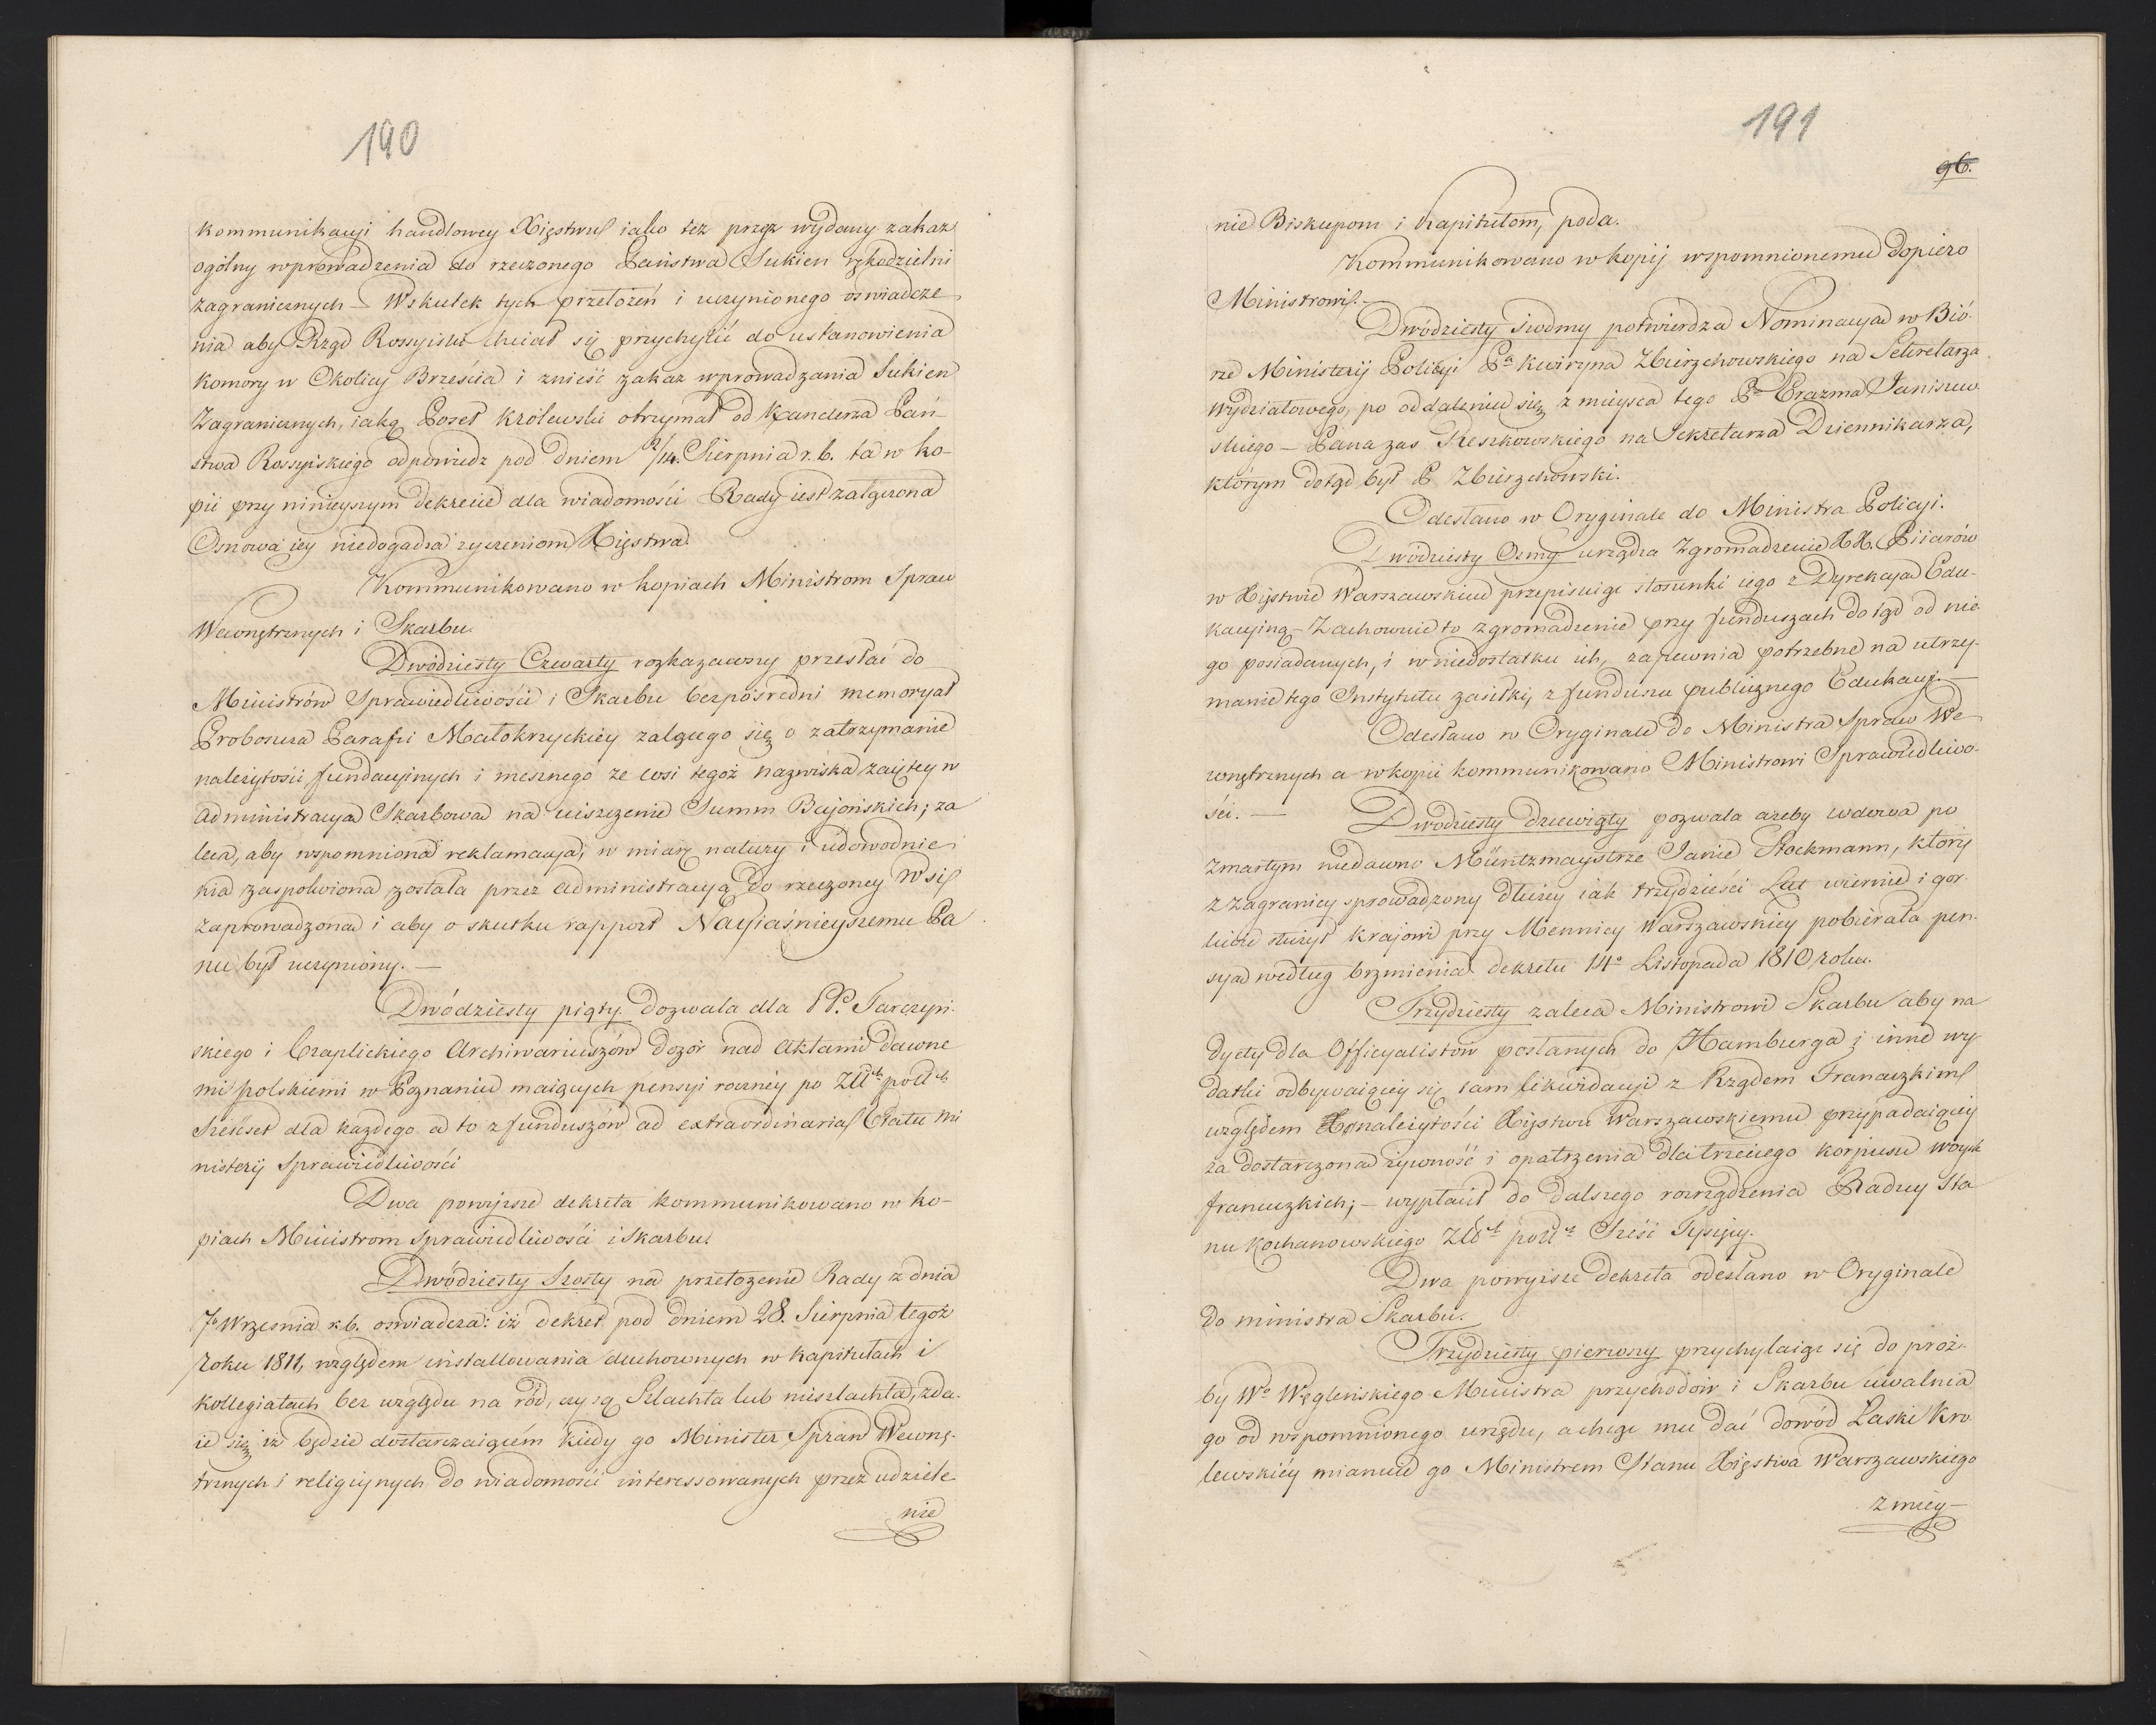 190
kommunikacyi handlowey Xięstwu iako też przez wydany zakaz
ogólny wprowadzenia do rzeczonego Państwa Sukien rękodzielni
zagranicznych – Wskutek tych przełożeń i uczynionego oświadcze
nia aby Rząd Rossyiski chciał się przychylić do ustanowienia
Komory w Okolicy Brześcia i znieść zakaz wprowadzania Sukien
Zagranicznych, iaką Poseł Królewski otrzymał od Kanclerza Pań-
stwa Rossyiskiego odpowiedz pod dniem 2/14. Sierpnia r. b. ta w ko-
pii przy ninieyszym dekrecie dla wiadomości Rady iest załączona
Osnowa iey niedogadza życzeniom Xięstwa.
Kommunikowano w kopiach Ministrom Spraw
Wewnętrznych i Skarbu.
Dwódziesty Czwarty rozkazawszy przesłać do
Ministrów Sprawiedliwości i Skarbu bezpośredni memoryał
Proboszcza Parafii Małokrzyckiey żalącego się o zatrzymanie
należytości fundacyinych i mesznego ze wsi tegoż nazwiska zaiętey w
administracyą Skarbową na uiszczenie Summ Bajońskich; za
leca, aby wspomniona reklamacya, w miarę natury i udowodnie
nia zaspokoiona została przez administracyą do rzeczoney Wsi
zaprowadzoną i aby o skutku rapport Nayiaśnieyszemu Pa
nu był uczyniony. —
Dwódziesty piąty. Dozwala dla PP. Tarczyń-
skiego i Czaplickiego Archiwariuszów dozór nad aktami dawne
mi polskiemi w Poznaniu maiących pensyi roczney po Złłch polłch
Sześćset dla każdego a to z funduszów ad extraordinaria Etatu Mi
nisteryi Sprawiedliwości
Dwa powyższe dekreta kommunikowano w ko-
piach Ministrom Sprawiedliwości i Skarbu.
Dwódziesty Szósty na przełożenie Rady z dnia
7o Września r. b. oświadcza: iż dekret pod dniem 28. Sierpnia tegoż
roku 1811, względem installowania duchownych w Kapitułach i
kollegiatach bez względu na ród, czy są Szlachta lub nieszlachta, zda-
ie się iż będzie dostarczaiącém kiedy go Minister Spraw Wewnę-
trznych i religiynych do wiadomości interessowanych przez udziele
nie
191
96.
nie Biskupom i Kapitułom, poda.
Kommunikowano w kopij wspomnionemu dopiero
Ministrowi. –
Dwódziesty siodmy potwierdza Nominacyą w Bió-
rze Ministeryi Policyi Pa Kwiryna Zbierzchowskiego na Sekretarza
Wydziałowego, po oddaleniu się z mieysca tego Pa Erazma Janiszew-
skiego – Pana zas Reszkowskiego na Sekretarza Dziennikarza,
którym dotąd był P. Zbierzchowski.
Odesłano w Oryginale do Ministra Policyi.
Dwódziesty Osmy urządza Zgromadzenie XX. Piiarów
w Xięstwie Warszawskiem przepisuiąc stosunki iego z Dyrekcyą Edu-
kacyiną – Zachowuie to zgromadzenie przy funduszach dotąd od nie
go posiadanych, i w niedostatku ich, zapewnia potrzebne na utrzy-
manie tego Instytutu zasiłki, z funduszu publicznego Edukacyi. —
Odesłano w Oryginale do Ministra Spraw We
wnętrznych a w kopii kommunikowano Ministrowi Sprawiedliwo-
ści. —
Dwodziesty dziewiąty pozwala ażeby wdowa po
zmarłym niedawno Müntzmaystrze Janie Stockmann, który
z zagranicy sprowadzony dłużey iak trzydzieści Lat wiernie i gor-
liwie służył krajowi przy Mennicy Warszawskiey pobierała pen-
syą według brzmienia dekretu 14o Listopada 1810 roku.
Trzydziesty zaleca Ministrowi Skarbu aby na
dyety dla Officyalistów posłanych do Hamburga i inne wy
datki odbywaiącey się tam likwidacyi z Rządem Francuzkim
względem należytości Xięstwu Warszawskiemu przypadaiącey
za dostarczoną żywność i opatrzenia dla trzeciego korpusu woysk
francuzkich; – wypłacił do dalszego rozrządzenia Radcy Sta
nu Kochanowskiego Złłch polłch Sześć Tysięcy.
Dwa powyższe dekreta odesłano w Oryginale
do ministra Skarbu.
Trzydziesty pierwszy przychylaiąc się do proź-
by Wo Węgleńskiego Ministra przychodów i Skarbu uwalnia
go od wspomnionego urzędu, a chcąc mu dać dowód Łaski Kró
lewskiéy mianuie go Ministrem Stanu Xięstwa Warszawskiego
z miey-